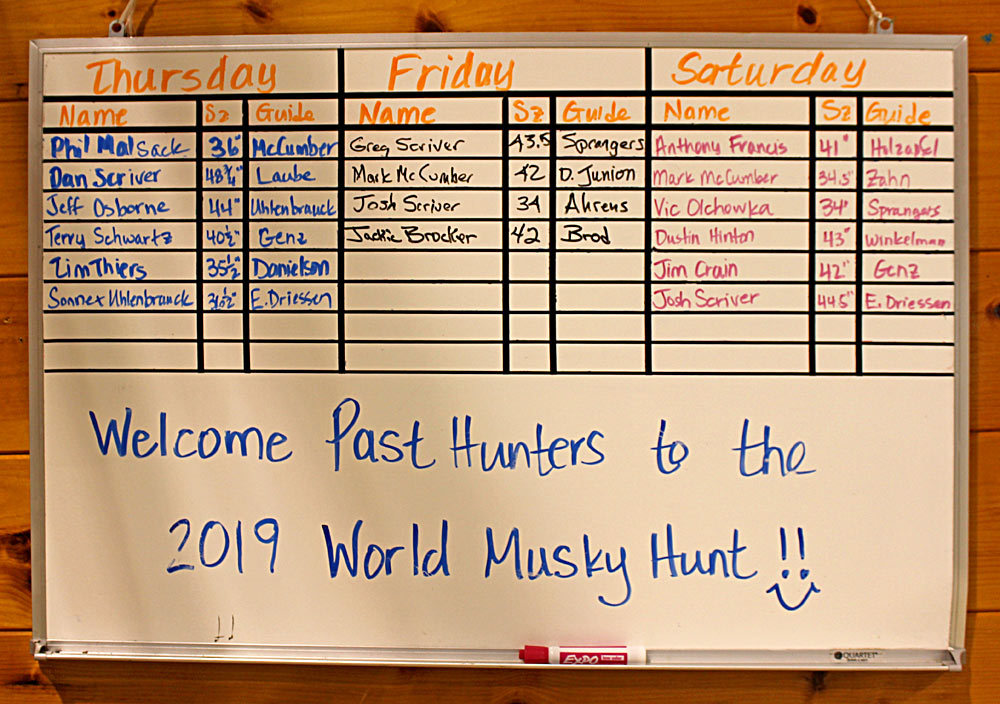 Thursday Friday Saturday
Name Sz Guide Name Sz Guide Name Sz Guide
Phil Malsack 36" McCumber Greg Scriver 43.5 Sprangers Anthony Francis 41" Holzapfel
Dan Scriver 48 3/4" Laube Mark McCumber 42 D. Junion Mark McCumber 34.5" Zahn
Jeff Osborne 44" Uhlenbrauck Josh Scriver 34 Ahrens Vic Olchowka 34" Sprangers
Terry Schwartz 40 1/2" Genz Jackie Brocker 42 Brod Dustin Hinton 43" Winkelman
Tim Thiers 35 1/2" Danielson Jim Crain 42" Genz
Uhlenbrauck E. Driessen Josh Scriver 44.5" E. Driessen
Welcome Past Hunters to the
2019 World Musky Hunt !!
EXPO
QUARTET